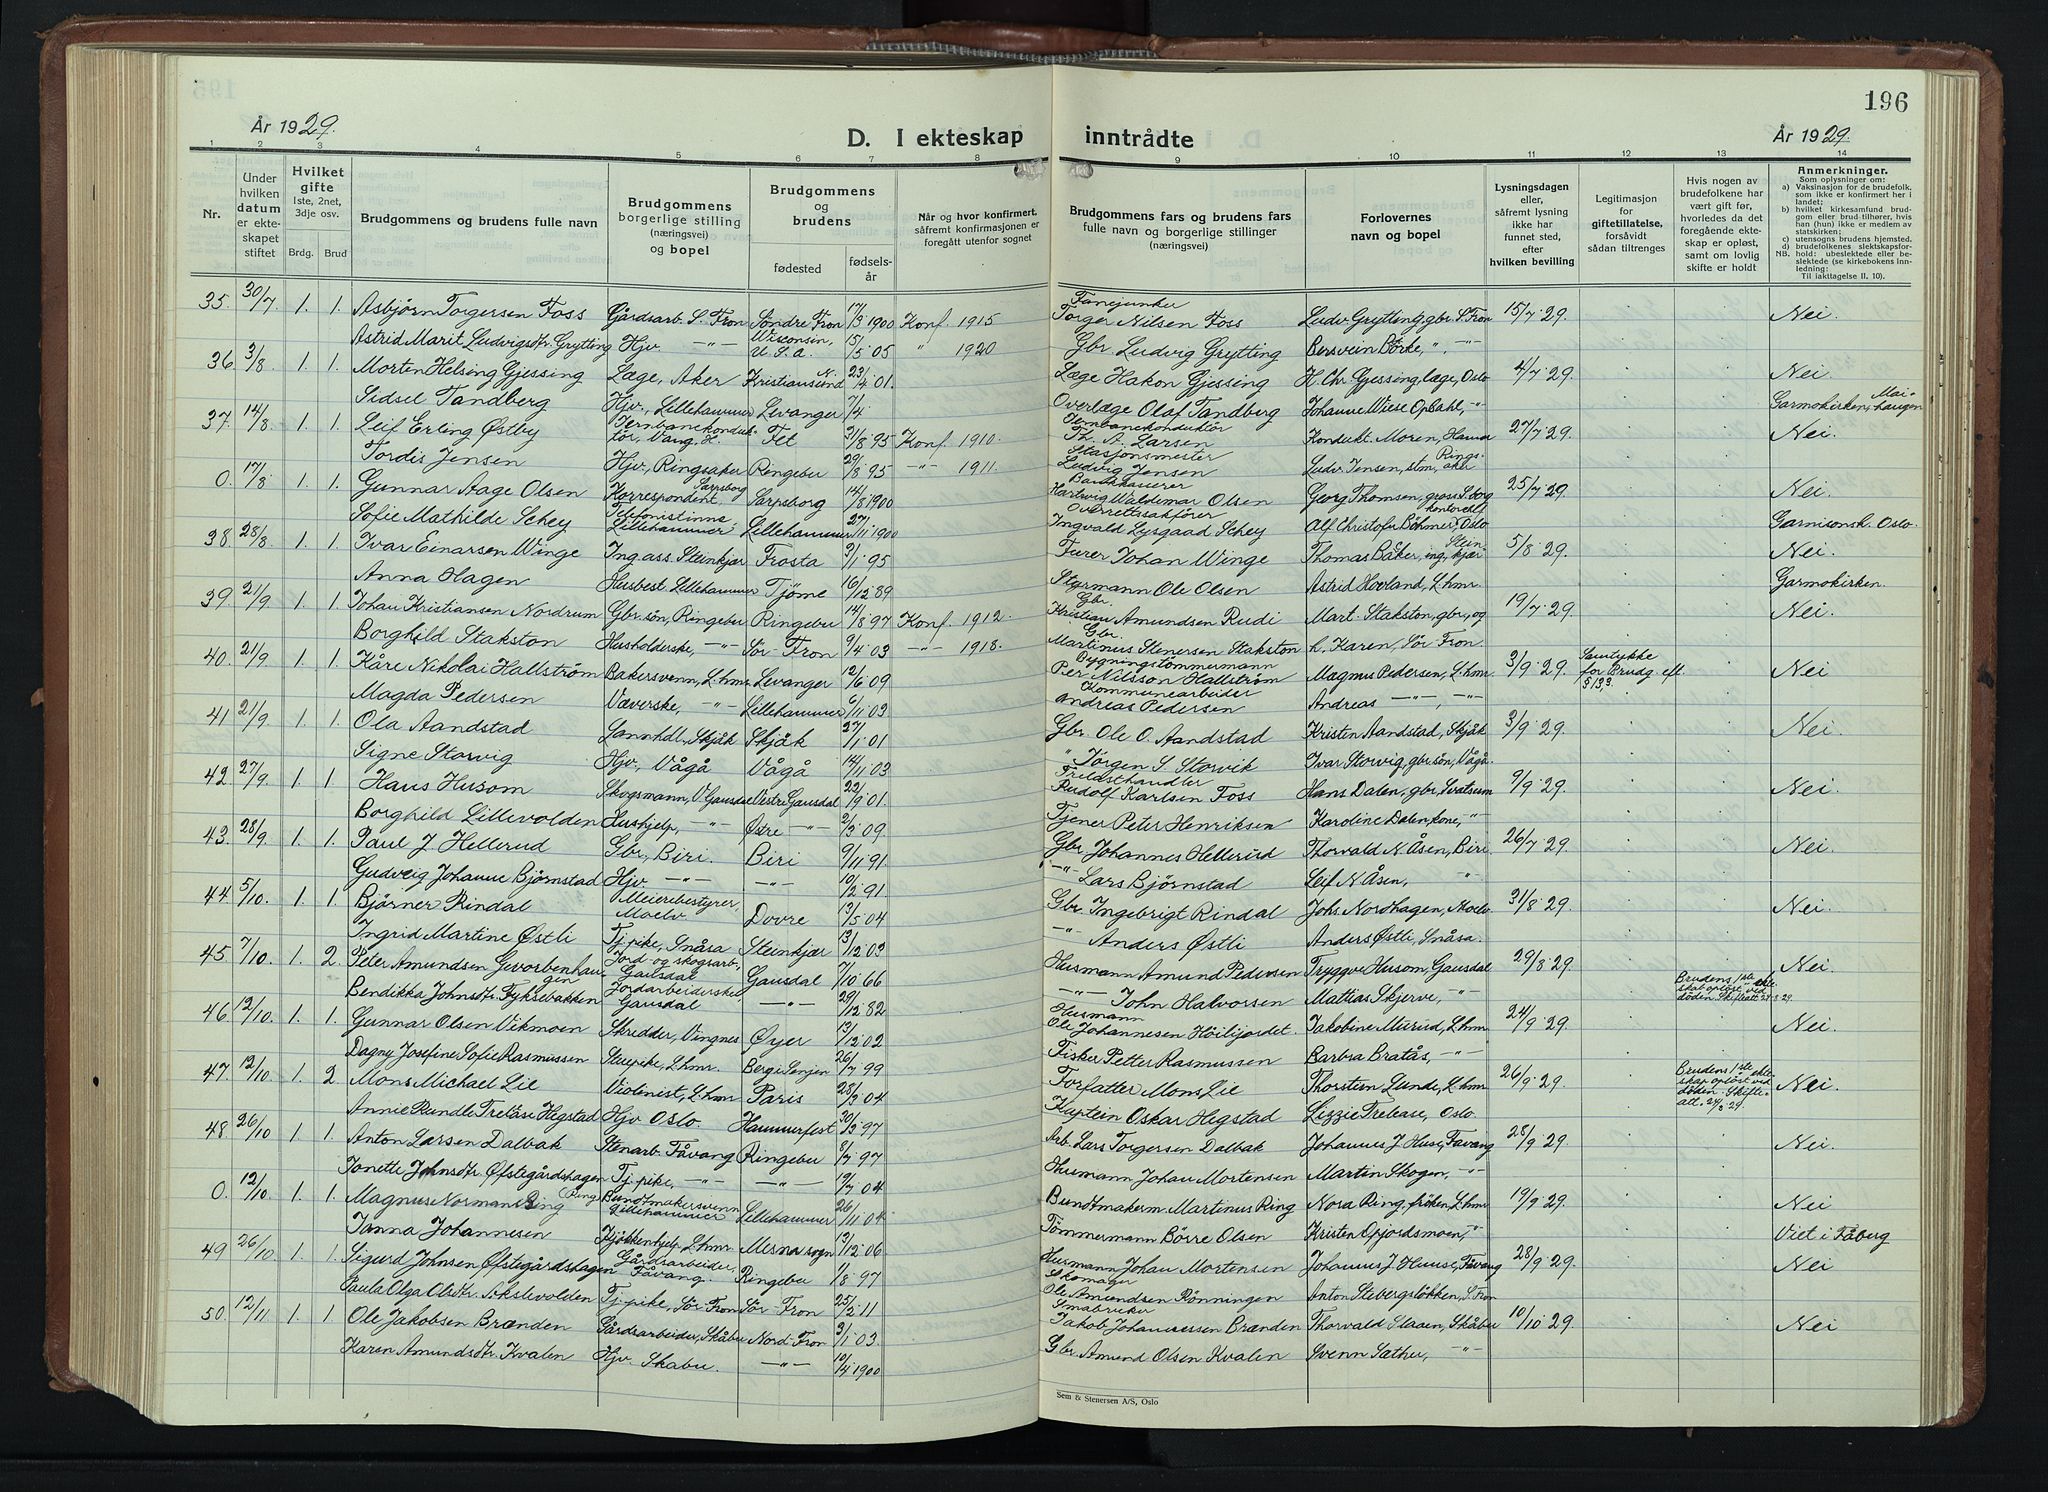 196
År 1929.
D. I ekteskap inntrådte
År 1929.
1 2 3 4 5 6 7 8 9 10 11 12 13 14
Nr.
Under hvilken datum er ekteskapet stiftet
Hvilket gifte 1ste, 2net, 3dje osv.
Brdg. Brud
Brudgommens og brudens fulle navn
Brudgommens borgerlige stilling (næringsvei) og bopel
Brudgommens og brudens
fødested
fødselsår
Når og hvor konfirmert, såfremt konfirmasjonen er foregått utenfor sognet
Brudgommens fars og brudens fars fulle navn og borgerlige stillinger (næringsvei)
Forlovernes navn og bopel
Lysningsdagen eller, såfremt lysning ikke har funnet sted, efter hvilken bevilling
Legitimasjon for giftetillatelse, forsåvidt sådan tiltrenges
Hvis nogen av brudefolkene har vært gift før, hvorledes da det foregående ekteskap er opløst, samt om lovlig skifte er holdt
Anmerkninger.
Som oplysninger om:
a) Vaksinasjon for de brudefolk, som ikke er konfirmert her i landet;
b) hvilket kirkesamfund brudgom eller brud tilhører, hvis han (hun) ikke er medlem av statskirken;
c) utensogns brudens hjemsted.
d) brudefolkenes slektskapsforhold: ubeslektede eller beslektede (se kirkebokens Innledning:
NB.
Til iakttagelse II. 10).
35. 30/7 1. 1. Asbjørn Torgersen Foss Gårdsarb. S. Fron Søndre Fron 17/3 1900 Konf. 1915 Fanejunker Torger Nilsen Foss Ludv. Grytting, gbr. S. Fron 15/7 29. Nei.
Astrid Marit Ludvigsdtr. Grytting Hjv. -"- Wisconsin, U.S.a. 15/5 05 " 1920 Gbr Ludvig Grytting Bersvein Børke, ", -"-
36. 3/8 1. 1. Morten Helsing Gjessing Læge, Aker Kristiansund N. 23/4 01. Læge Hakon Gjessing H. Chr. Gjessing, læge, Oslo 4/7 29. Nei.
Sidsel Tandberg Hjv., Lillehammer Levanger 7/4 Overlæge Olaf Tandberg Johanne Wiese Opdahl, -"- Garmokirken, Maihaugen
37. 14/8 1. 1. Leif Erling Østby Jernbanekonduktør, Vang H. Fet 3/8 95 Konf. 1910. Jernbanekonduktør Th. A. Larsen Kondukt. Moren, Hamar 27/7 29. Nei.
Tordis Jensen Hjv., Ringsaker Ringebu 29/8 95 -"- 1911. Stasjonsmester Ludvig Jensen Ludv. Jensen, stm, Ringsaker
0. 17/8 1. 1. Gunnar Aage Olsen Korrespondent Sarpsborg Sarpsborg 14/8 1900 Bankkasserer Hartvig Waldemar Olsen Georg Thomsen, gross. S.borg 25/7 29. Nei.
Sofie Mathilde Schey Telefonistinne Lillehammer Lillehammer 27/11 1900 Overrettssakfører Ingvald Lysgaad Schey Alf Christofer Bøhmer, kontorchef Oslo Garnisonsk. Oslo.
38. 28/8 1. 1. Ivar Einarsen Winge Ing.ass. Steinkjær Frosta 3/1 95 Furer Johan Winge Thomas Båker, ing., Steinkjær 5/8 29. Nei.
Anna Hagen Husbest. Lillehammer Tjøme 16/12 89 Styrmann Ole Olsen Astrid Hovland, L.hmr. Garmokirken.
39. 21/9 1. 1. Johan Kristiansen Nordrum Gbr.søn, Ringebu Ringebu 14/8 97 Konf. 1912. Gbr. Kristian Amundsen Rudi Mart. Stakston, gbr., og 19/7 29. Nei.
Borghild Stakston Husholderske, -"- Sør-Fron 9/4 03 -"- 1918. Gbr. Martinus Stenersen Stakston h. Karen, Sør Fron
40. 21/9 1. 1. Kåre Nikolai Hallstrøm Bakersvenn, L.hmr. Levanger 12/6 09 Bygningstømmermann Per Nilsson Hallstrøm Magnus Pedersen, L.hmr 3/9 29. Samtykke for Brudg. eft. § 13,3. Nei
Magda Pedersen Væverske, -"- Lillehammer 6/11 03 Kommunearbeider Andreas Pedersen Andreas -"-, -"-
41. 21/9 1. 1. Ola Aandstad Lannhdl., Skjåk Skjåk 27/1 01 Gbr. Ole O. Aandstad Kristen Aandstad, Skjåk 3/9 29. Nei.
Signe Storvig Hjv., Vågå Vågå 14/11 03 " Jørgen S. Storvik Ivar Storvig, gbr.søn, Vågå.
42. 27/9 1. 1. Hans Husom Skogsmann, V. Gausdal Vestre Gausdal 22/9 01. Frilasthandler Rudolf Karlsen Foss Hans Dalen, gbr, Svatsum 9/9 29. Nei.
Borghild Lillevolden Hushjelp, -"- Østre -"- 2/3 09. Tjener Peter Henriksen Karoline Dalen, kone, -"-
43. 28/9 1. 1. Paul J. Hellerud Gbr., Biri. Biri 9/11 91 Gbr Johannes Hellerud Thorvald N. Åsen, Biri 26/7 29. Nei.
Gudveig Johanne Bjørnstad Hjv. -"- -"- 10/2 91. -"- Lars Bjørnstad Leif N. Åsen, -"-
44. 5/10. 1. 1. Bjørner Rindal Meieribestyrer, Moelv Dovre 13/5 04 Gbr Ingebrigt Rindal Johs. Nordhagen, Moelv 31/8 29. Nei.
Ingrid Martine Østli Tj.pike, Snåsa Steinkjær 13/12 03 -"- Anders Østli Anders Østli, Snåsa.
45. 7/10. 1. 2. Peter Amundsen Gevorbenhaugen Jord- og skogsarb., Gausdal Gausdal 7/10 66 Husmann Amund Pedersen Tryggve Husom, Gausdal 29/8 29. Nei.
Bendikka Johnsdtr. Fyksebakken Jordarbeiderske Gausdal -"- 29/12 82 -"- John Halvorsen Mattias Skjerve, -"- Brudens 1ste ekteskap opløst ved døden. Skifteatt.
46. 12/10. 1. 1. Gunnar Olsen Vikmoen Skredder, Vingnes Øyer 13/12 02 Husmann Ole Johannesen Høiljordet. Jakobine Murud, L.hmr 24/9 29. Nei.
Dagny Josefine Sofie Rasmussen Stuepike, L.hmr. Berg i Senjen 26/7 99 Fisker Petter Rasmussen Barbra Bratås, -"-
47. 12/10. 1. 2. Mons Michael Lie Violinist, L.hmr Paris 28/3 04 Forfatter Mons Lie Thorstein Lunde, L.hmr 26/9 29. Brudens 1ste ekteskap opløst ved døden. Skifteatt. 24/8 29. Nei.
Annie Rundle Trelease Hegstad Hjv Oslo Hammerfest 30/3 97 Kaptein Oskar Hegstad Lizzie Trelease, Oslo.
48. 26/10 1. 1. Anton Larsen Dalbak Stenarb. Fåvang Ringebu 8/7 97 Arb. Lars Torgersen Dalbak Johannes J. Huse, Fåvang 28/9 29. Nei.
Jonette Johnsdtr. Øfstegårdshagen Tj.pike, -"- -"- 19/7 04 Husmann Johan Mortensen Martin Skogen, -"-
0. 12/10 1. 1. Magnus Norman Ring Ring Buntmakersvenn Lillehammer Lillehammer 26/11 04. Buntmakerm. Martinus Ring Nora Ring, frøken, L.hmr 19/9 29. Nei
Janna Johannesen Kjøkkenhjelp L.hmr. Mesna sogn 13/12 06 Tømmermann Børre Olsen Kristen Opjordsmoen, -"- Viet i Fåberg
49. 26/10 1. 1. Sigurd Johnsen Øfstegårdshagen Gårdsarbeider, Fåvang. Ringebu 1/8 97 Husmann Johan Mortensen Johannes J. Huuse, Fåvang 28/9 29. Nei
Paula Olga Olsdtr. Tj.pike, Sør-Fron Sør-Fron 25/2 11 Skomager Ole Amundsen Rønningen Anton Stebergsløkken, S. Fron
50. 12/11 1. 1 Ole Jakobsen Brænden Gårdsarbeider, Skåbu Nord-Fron 3/1 03. Småbruker Jakob Johannessen Brænden Thorvald Slaaen, Skåbu 10/10 29. Nei
Karen Amundsdtr. Kvalen Hjv. Skabu. -"- 10/4 1900 Gbr Amund Olsen Kvalen Svenn Sæther, -"-
Sem & Stenersen A/S, Oslo